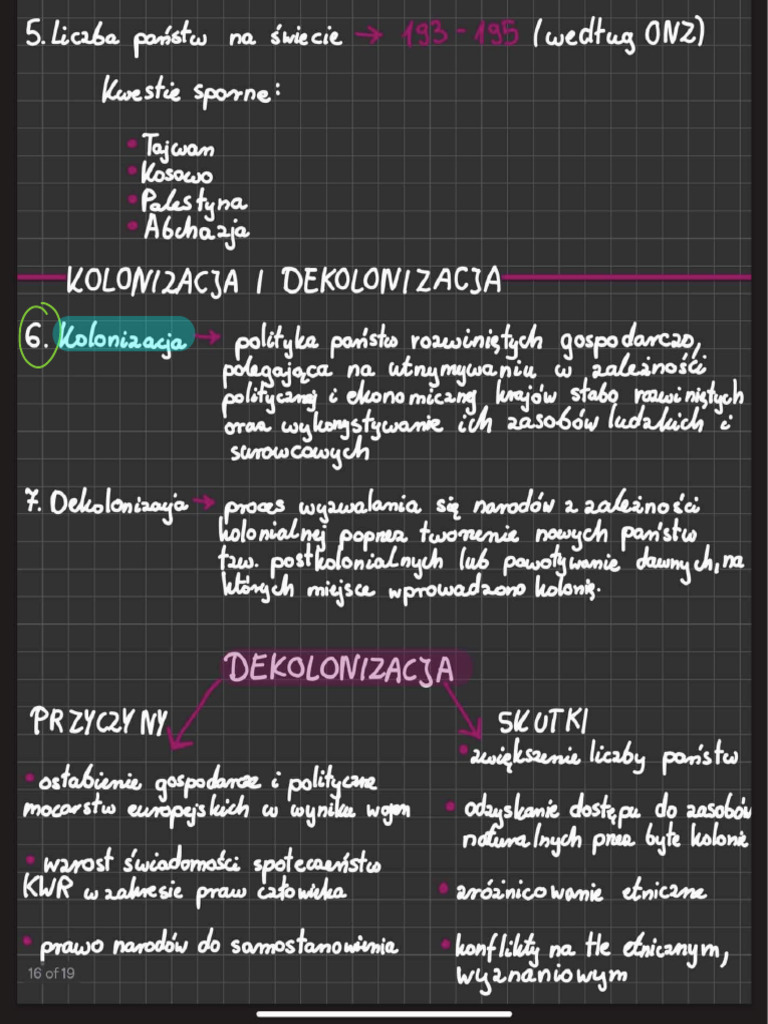 5. Liczba państw na świecie → 193 - 195 (według ONZ)
Kwestie sporne:
• Tajwan
• Kosowo
• Palestyna
• Abchazja
KOLONIZACJA I DEKOLONIZACJA
6. Kolonizacja → polityka państw rozwiniętych gospodarczo,
polegająca na utrzymywaniu w zależności
politycznej i ekonomicznej krajów słabo rozwiniętych
oraz wykorzystywanie ich zasobów ludzkich i
surowcowych
7. Dekolonizacja → proces wyzwalania się narodów z zależności
kolonialnej poprzez tworzenie nowych państw
tzw. postkolonialnych lub powoływanie dawnych, na
których miejsce wprowadzono kolonię.
DEKOLONIZACJA
PRZYCZYNY
• osłabienie gospodarcze i polityczne
mocarstw europejskich w wyniku wojen
• wzrost świadomości społeczeństw
KWR w zakresie praw człowieka
• prawo narodów do samostanowienia
SKUTKI
• zwiększenie liczby państw
• odzyskanie dostępu do zasobów
naturalnych przez byłe kolonie
• zróżnicowanie etniczne
• konflikty na tle etnicznym,
wyznaniowym
16 of 19